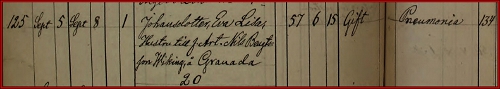 125 Sept 5 Sept 8 1 Johansdotter, Eva Lisa, 57 6 15 Gift Pneumonia 134
Hustru till f. Art. Nils Bengts
son Wiking, i Granada
20